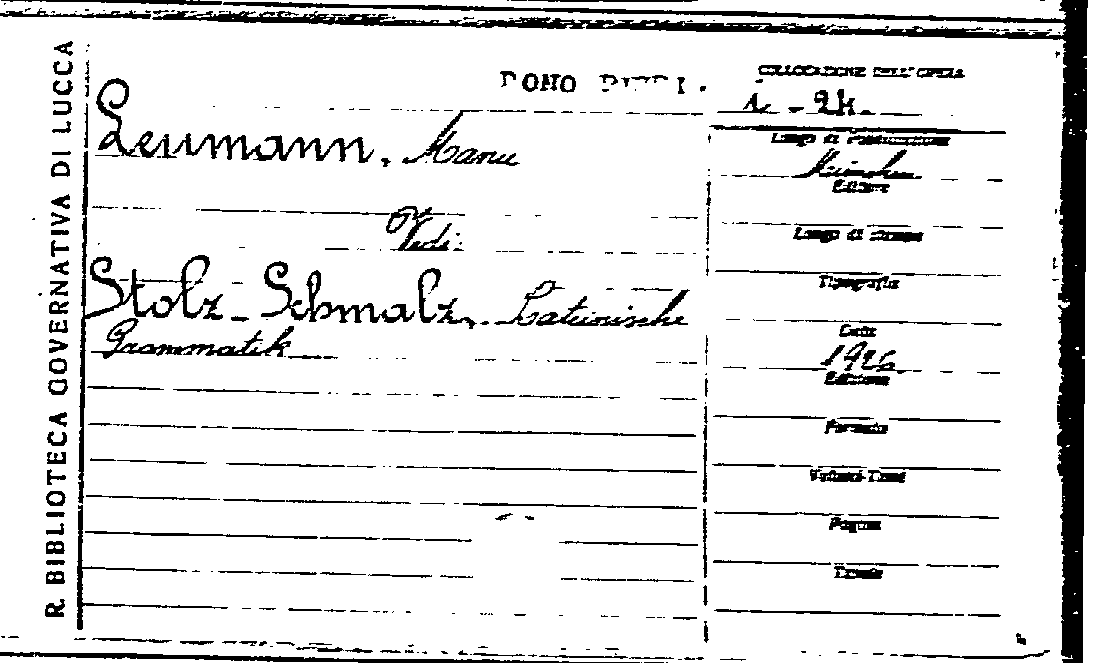 R. BIBLIOTECA GOVERNATIVA DI LUCCA
DONO
COLLOCAZIONE DELL'OPERA
Leumann, Manu
Vedi:
Stolz-Schmalz, Lateinische
Grammatik
Luogo di Pubblicazione
München
Editore
Luogo di stampa
Tipografia
Data
1926
Edizione
Formato
Volumi-Tomi
Pagine
Tavole